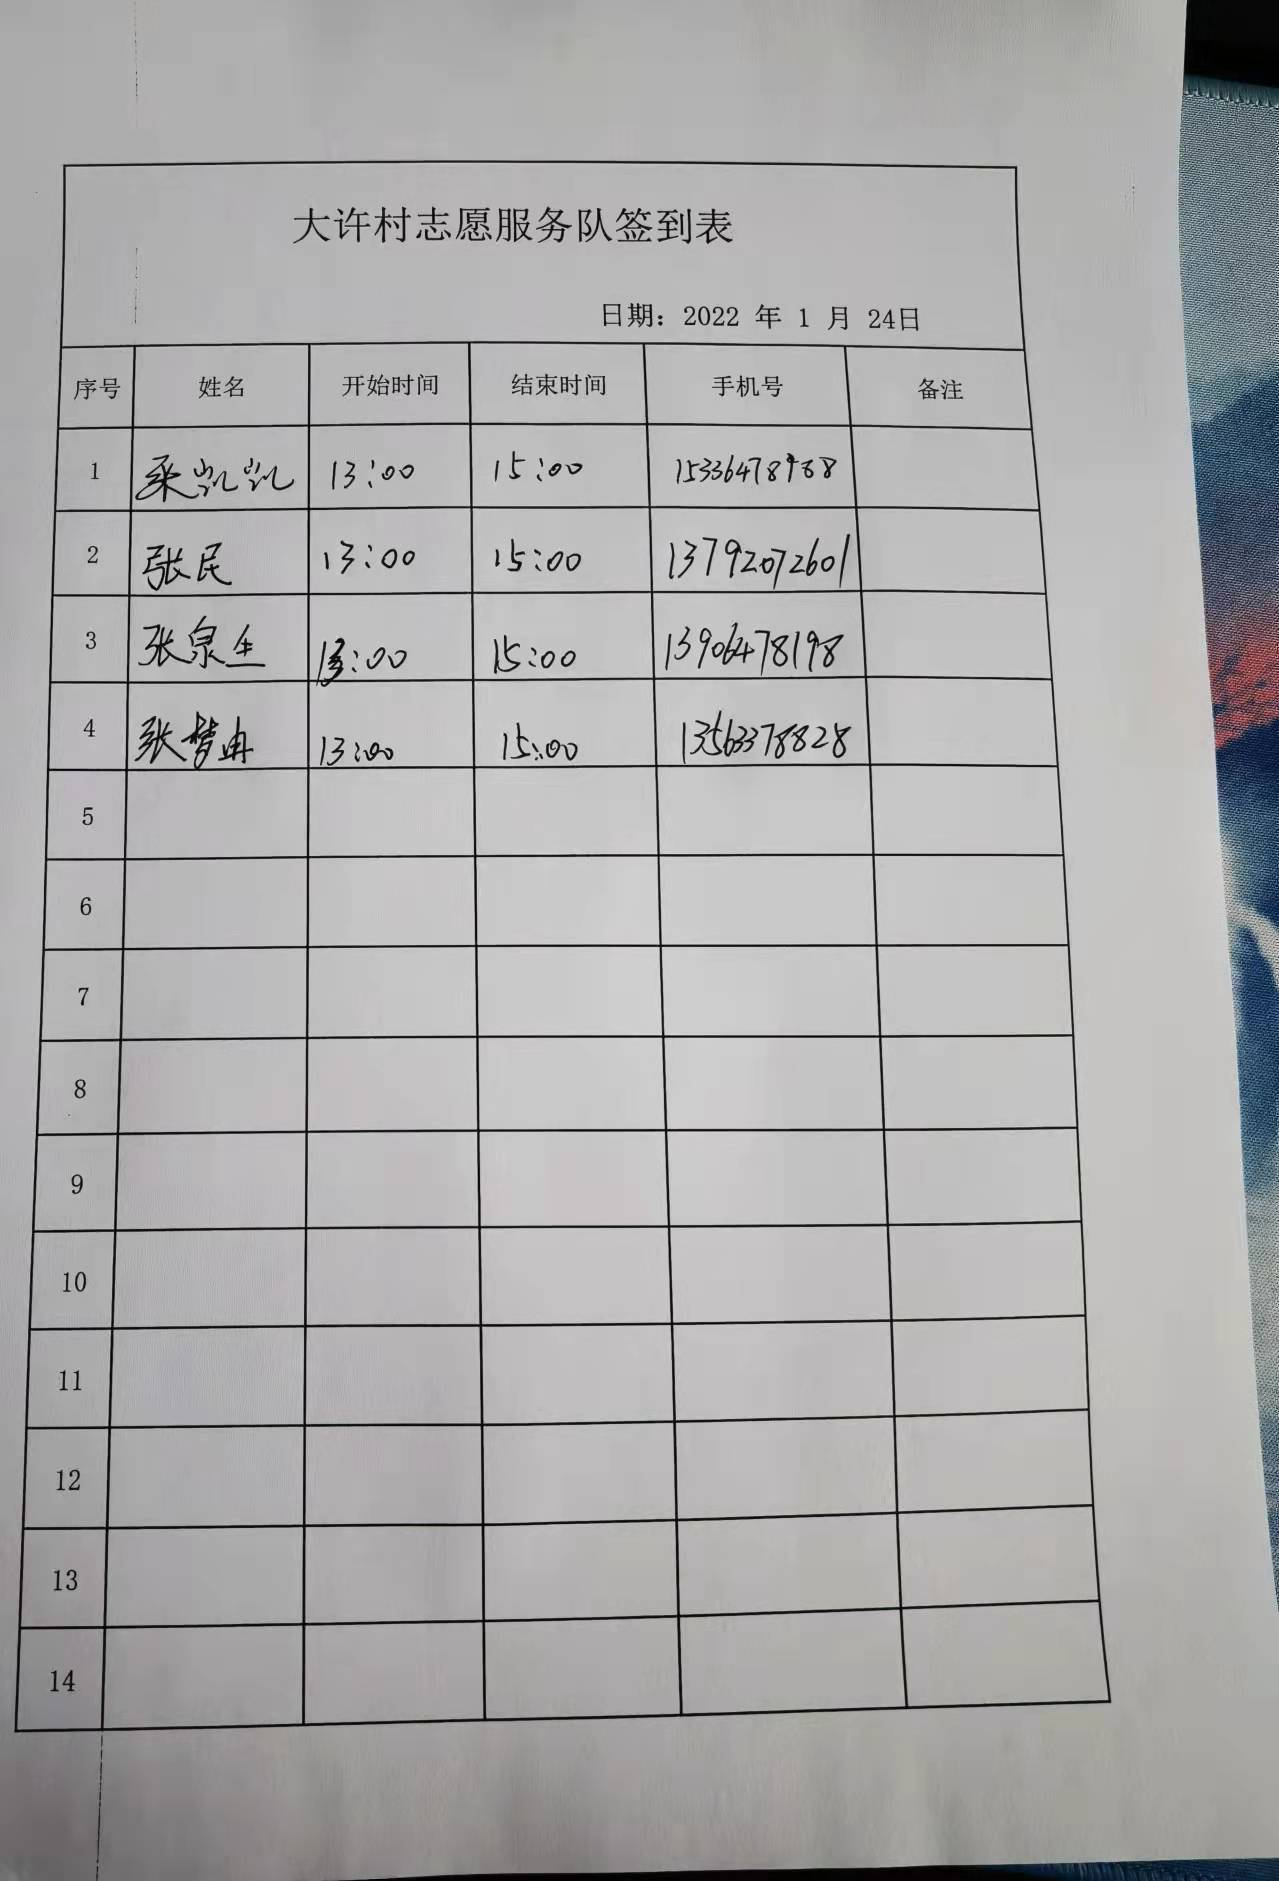 大许村志愿服务队签到表
日期：2022 年 1 月 24日
序号 姓名 开始时间 结束时间 手机号 备注
1 凯凯 13:00 15:00
2 张民 13:00 15:00 13792072601
3 张泉生 13:00 15:00 13906478198
4 张梦冉 13:00 15:00 13563378828
5
6
7
8
9
10
11
12
13
14